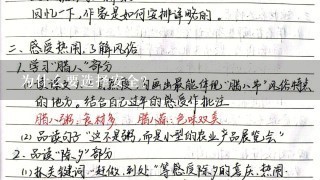 回忆一下,作家是如何安排详略的。
二、感受热闹,了解风俗
1. 学习“腊八”部分
画出最能体现“腊八节”风俗特点
的地方。结合自己过年的感受作批注
腊八粥:食材多 腊八蒜:色味双美
(2) 品读句子“这不是粥,而是小型的农业产品展览会”
2. 品读“除夕”部分
(1) 抓关键词“赶做、到处”等感受除夕的喜庆、热闹
为什么要选择安全